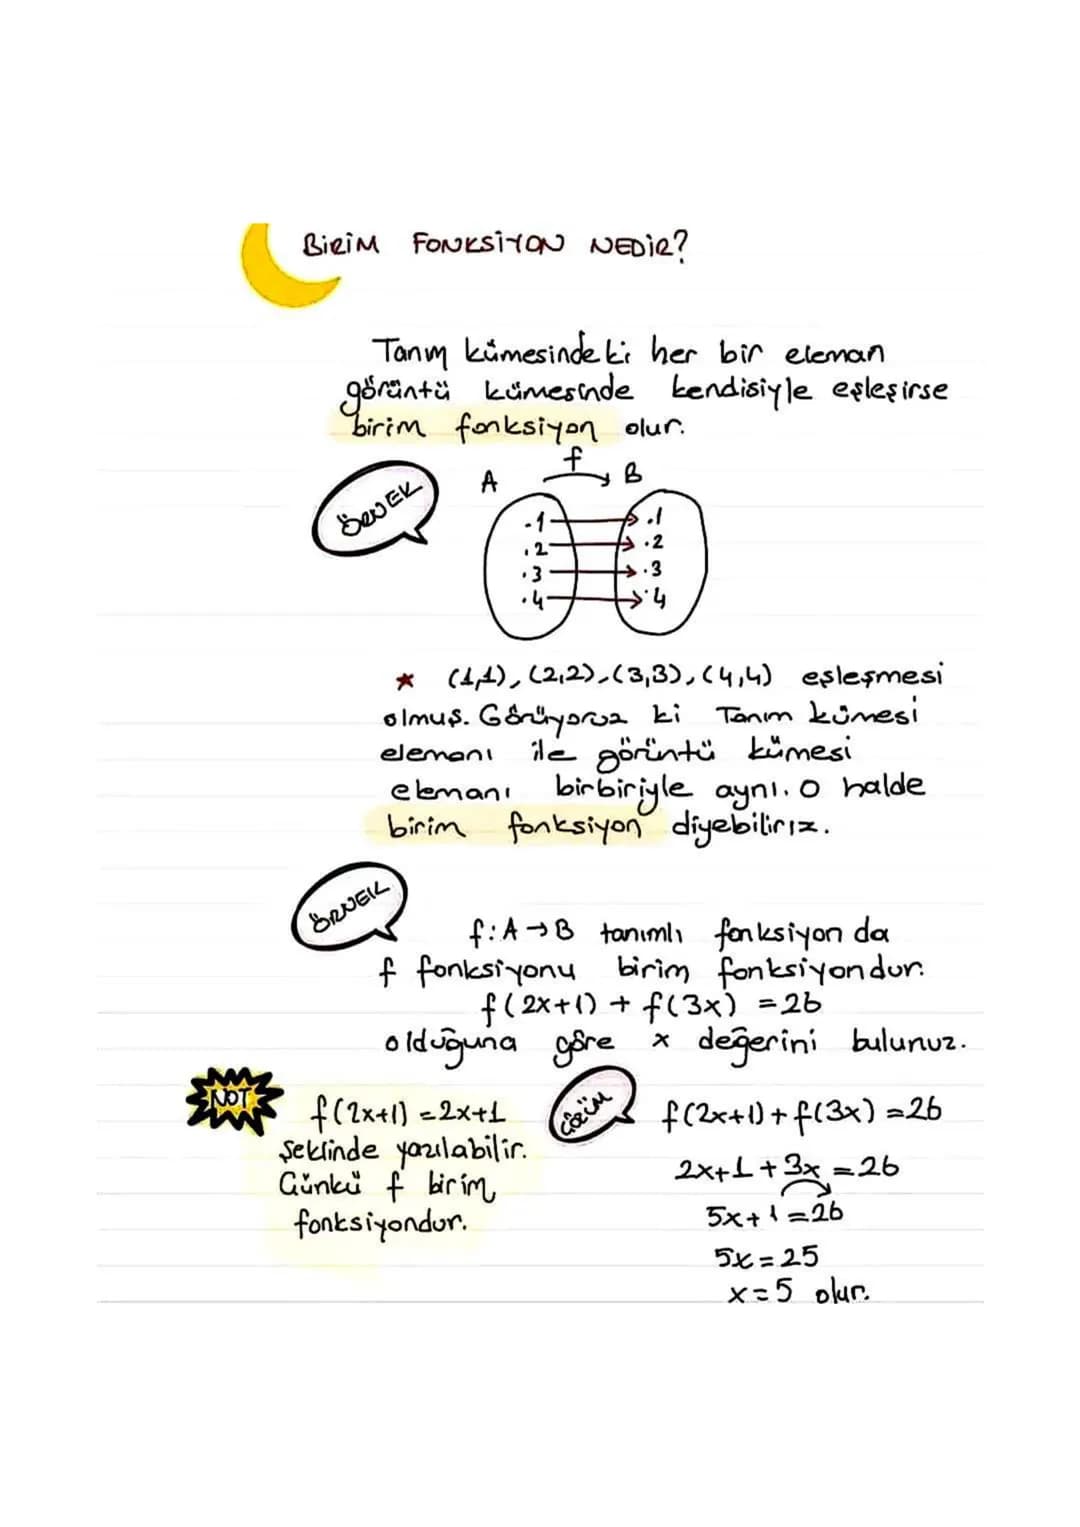 BİRİM FONKSİYON NEDİR?
Tanım kümesindeki her bir eleman
görüntü kümesinde kendisiyle eşleşirse
birim fonksiyon olur.
f
A B
ÖRNEK
.1 .1
.2 .2
.3 .3
.4 .4
★ (1,1), (2,2), (3,3), (4,4) eşleşmesi
olmuş. Görüyoruz ki Tanım kümesi
elemanı ile görüntü kümesi
elemanı birbiriyle aynı. O halde
birim fonksiyon diyebiliriz.
ÖRNEK
f: A → B tanımlı fonksiyon da
f fonksiyonu birim fonksiyondur.
f(2x+1) + f(3x) = 26
olduğuna göre x değerini bulunuz.
NOT
f(2x+1) = 2x+1
Şeklinde yazılabilir.
Çünkü f birim
fonksiyondur.
çözüm
f(2x+1) + f(3x) = 26
2x+1+3x = 26
5x+1 = 26
5x = 25
x = 5 olur.